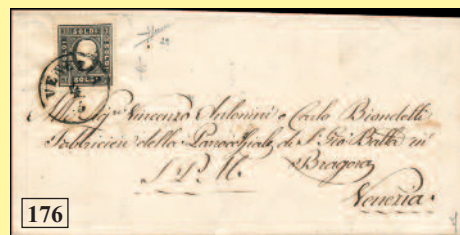 SOLDI
SOLDI
VENEZIA
4
5
Alli Sig.ri Vincenzo Antonini e Carlo Biondetti
Fabbricieri della Parrocchiale di S. Gio Batta in
Bragora
S. P. M.
Venezia
176